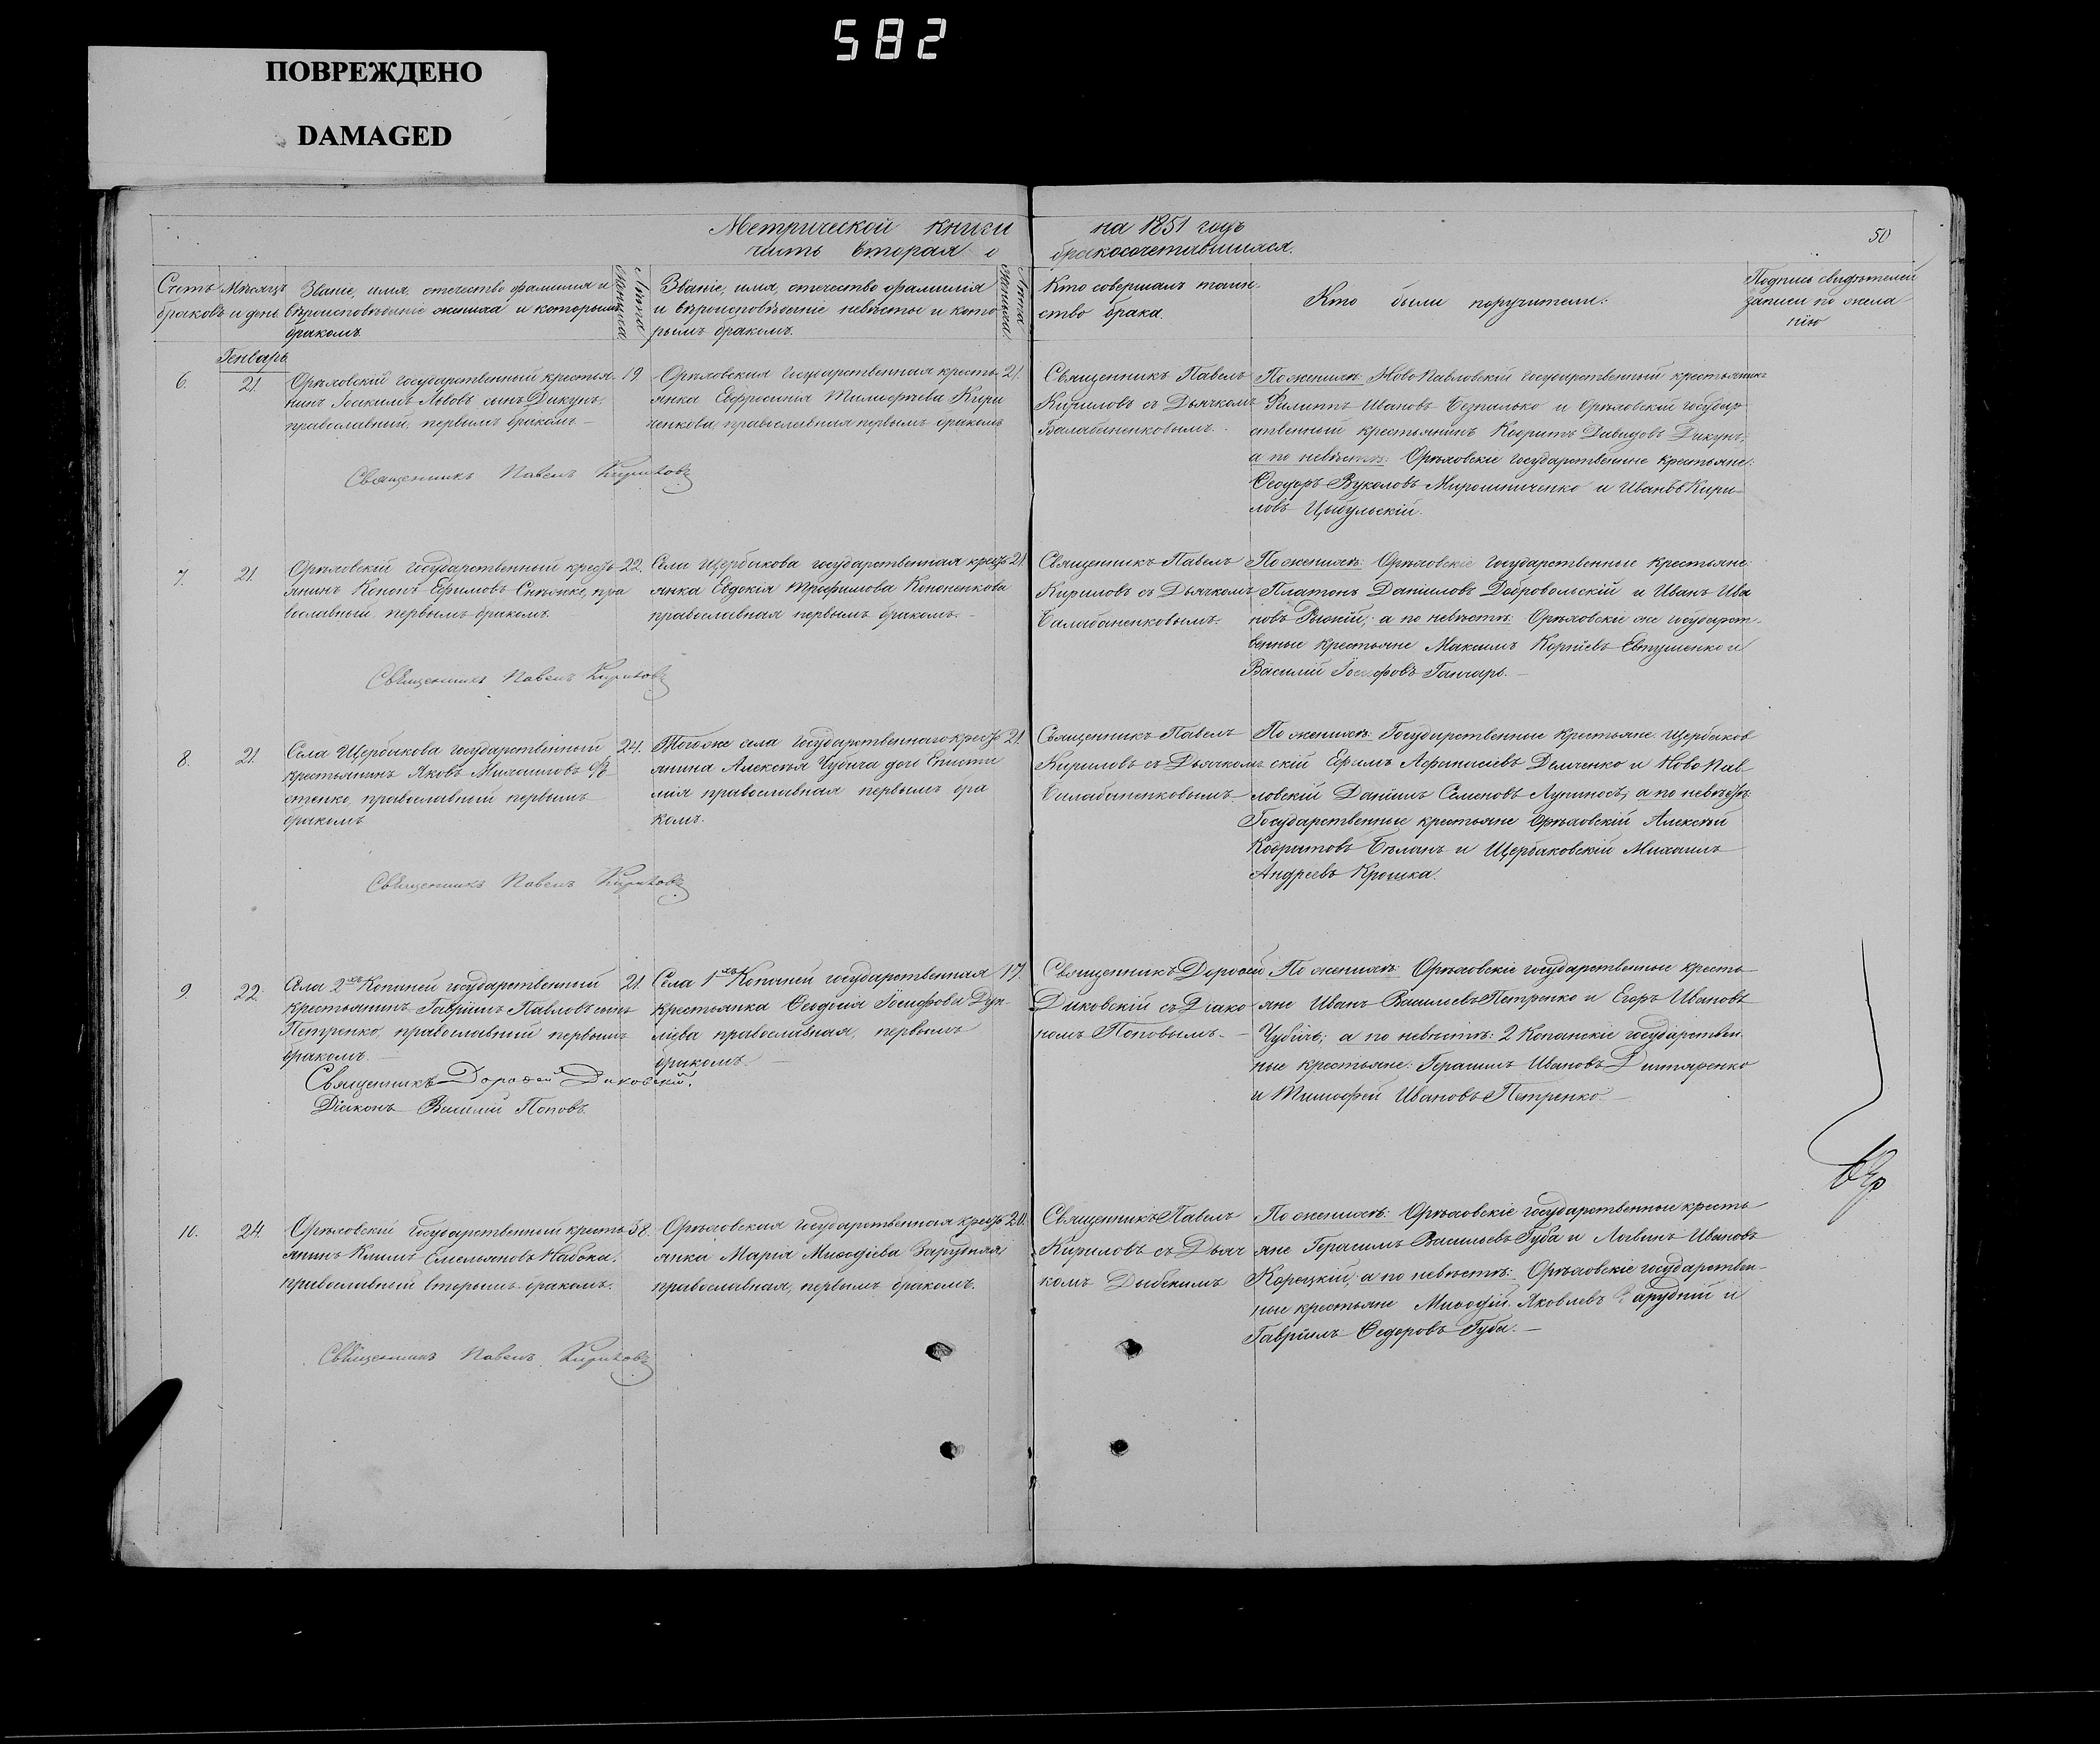 582
ПОВРЕЖДЕНО
DAMAGED
Метрической книги на 1851 годъ
часть вторая о бракосочетавшихся.
50
Счетъ браковъ
Мѣсяцъ и день
Званіе, имя, отечество фамилія и
вѣроисповѣданіе жениха и которымъ
бракомъ
Лѣта жениха
Званіе, имя, отечество фамилія
и вѣроисповѣданіе невѣсты и кото
рымъ бракомъ.
Лѣта
Кто совершалъ таин-
ство брака.
Кто были поручители:
Подпись свидѣтелей
записи по жела
нію
Генварь
6.
21.
Орѣховскій государственный крестья-
нинъ Іоакимъ Львовъ сынъ Дикунъ,
православный, первымъ бракомъ –
19
Орѣховская государственная кресть-
янка Евфросинія Тимофѣева Кири
ченкова, православная первымъ бракомъ
21.
Священникъ Павелъ
Кириловъ съ Дьячкомъ
Балабаненковымъ.
По женихѣ: Ново Павловскій государственный крестьянинъ
Филиппъ Ивановъ Безпалько и Орѣховскій государ
ственный крестьянинъ Кодратъ Давидовъ Дикунъ;
а по невѣстѣ: Орѣховскіе государственные крестьяне:
Ѳеодоръ Вуколовъ Мирошниченко и Иванъ Кири-
ловъ Цыбульскій.
Священникъ Павелъ Кириловъ
7.
21.
Орѣховскій государственный крест-
янинъ Кононъ Ефимовъ пра
вославный, первымъ бракомъ.
22.
Села Щербакова государственная крест-
янка Евдокія Трофимова Кононенкова
православная первымъ бракомъ. –
21.
Священникъ Павелъ
Кириловъ съ Дьячкомъ
Балабаненковымъ.
По женихѣ: Орѣховскіе государственные крестьяне:
Платонъ Даниловъ Добровольскій и Иванъ Ива
новъ а по невѣстѣ: Орѣховскіе же государст-
венные крестьяне Максимъ Корніевъ Евтушенко и
Василій Іосифовъ Ганчаръ. –
Священникъ Павелъ Кириловъ
8.
21.
Села Щербакова государственный
крестьянинъ Яковъ Михаиловъ
православный первымъ
бракомъ
24.
Тогоже села государственнаго крест-
янина Алексѣя Чубича дочь Еписти
мія православная первымъ бра
комъ.
21.
Священникъ Павелъ
Кириловъ съ Дьячкомъ
Балабаненковымъ.
По женихѣ: Государственные крестьяне Щербаков
скій Ефимъ Аѳанасіевъ Демченко и Ново Пав-
ловскій Даніилъ Семеновъ Лупиносъ; а по невѣстѣ:
Государственные крестьяне Орѣховскій Алексѣй
Кодратовъ Бѣланъ и Щербаковскій Михаилъ
Андреевъ Крошка.
Священникъ Павелъ Кириловъ
9.
22.
Села 2хъ Копаней государственный
крестьянинъ Гавріилъ Павловъ сынъ
Петренко, православный первымъ
бракомъ. –
21.
Села 1хъ Копаней государственная
крестьянка Ѳеодосія Іосифова
православная, первымъ
бракомъ –
17.
Священникъ Дороѳей
Диковскій съ Діако
номъ Поповымъ. –
По женихѣ: Орѣховскіе государственные кресть
яне Иванъ Васильевъ Петренко и Егоръ Ивановъ
Чубичъ; а по невѣстѣ: 2 Копанскіе государствен
ные крестьяне: Герасимъ Ивановъ
и Тимофей Ивановъ Петренко. –
Священникъ Дороѳей Диковскій.
Діаконъ Василій Поповъ.
10.
24.
Орѣховскій государственный кресть-
янинъ Климъ Емельяновъ Набока,
православный вторымъ бракомъ.
38.
Орѣховская государственная крест-
янка Марія Меѳодіева Зарудняя
православная, первымъ бракомъ.
20.
Священникъ Павелъ
Кириловъ съ Дьяч
комъ
По женихѣ: Орѣховскіе государственные кресть
яне Герасимъ Васильевъ Губа и Логвинъ Ивановъ
Корецкій; а по невѣстѣ: Орѣховскіе государствен-
ные крестьяне Меѳодій Яковлевъ Зарудній и
Гавріилъ Ѳедоровъ Губа. –
Священникъ Павелъ Кириловъ